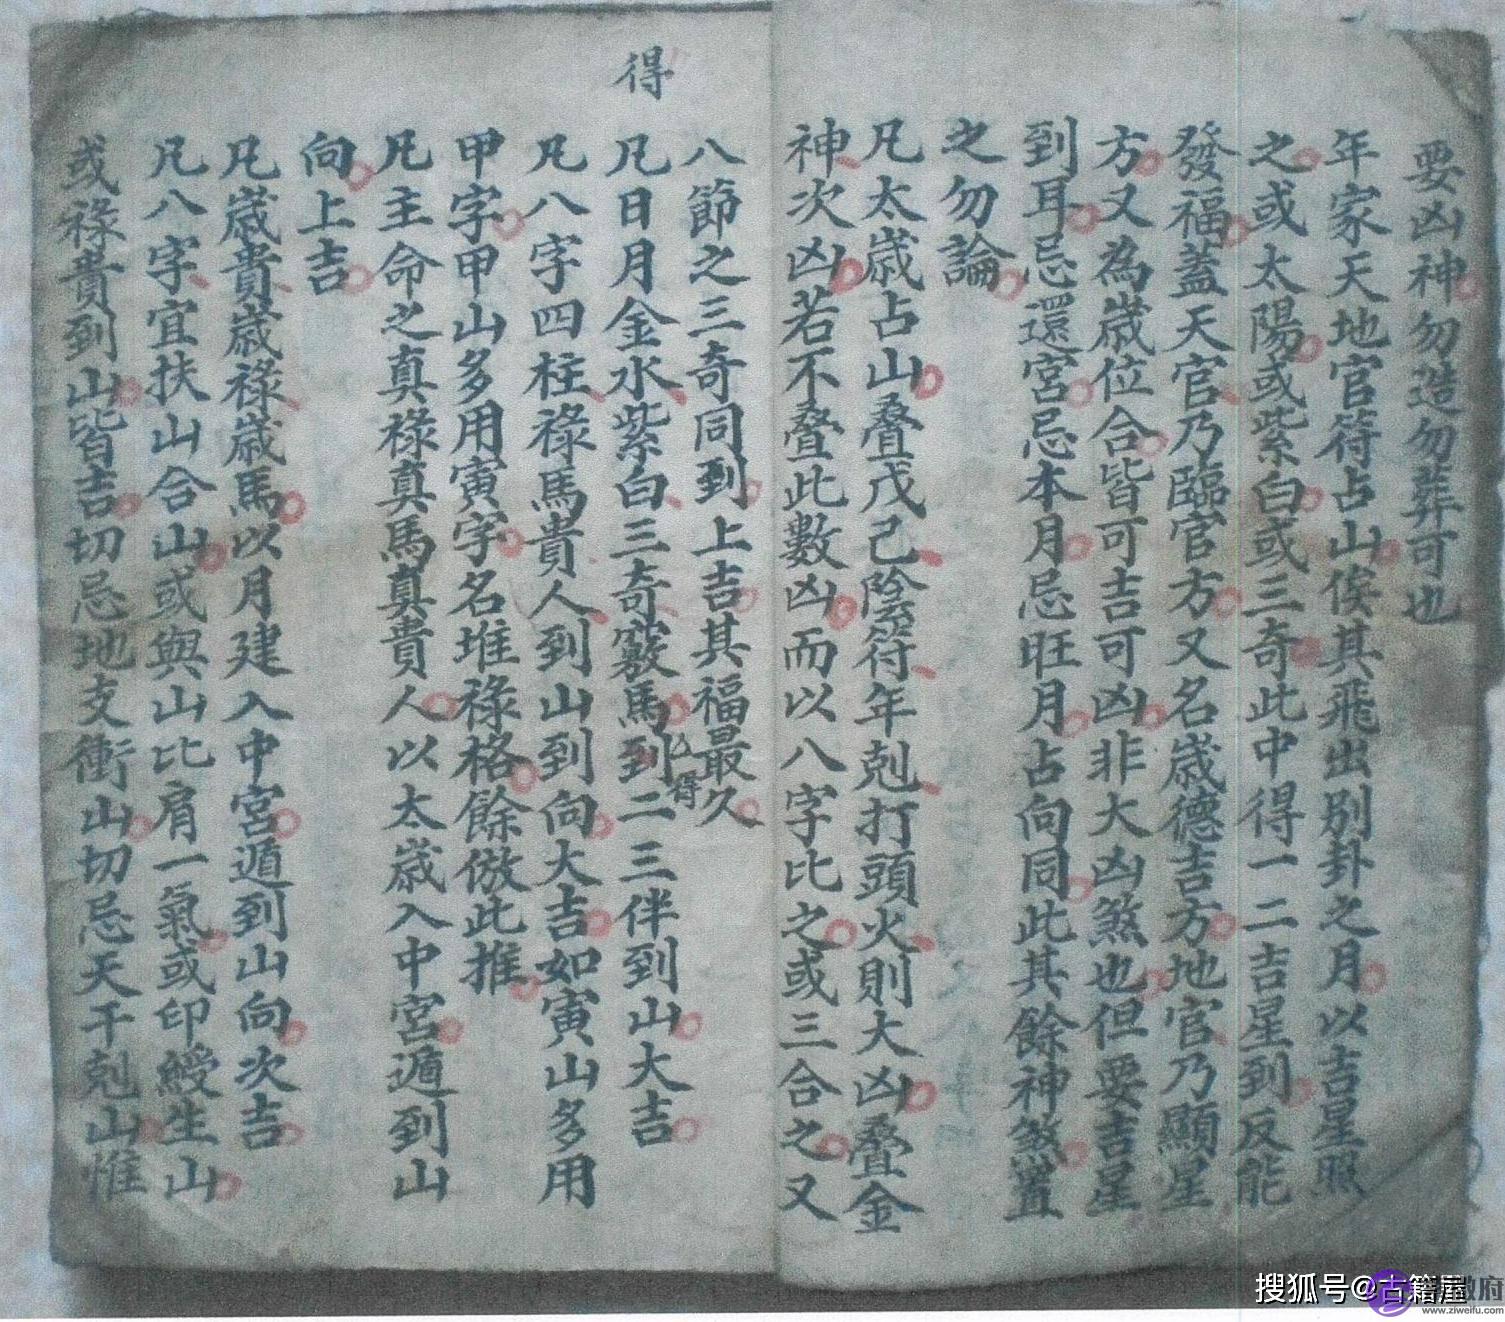 要凶神勿造勿葬可也
年家天地官符占山俟其飛出別卦之月以吉星照
之或太陽或紫白或三奇此中得一二吉星到反能
發福蓋天官乃臨官方又名歲德吉方地官乃顯星
方又為歲位合皆可吉可凶非大凶煞也但要吉星
到耳忌還宮忌本月忌旺月占向同此其餘神煞置
之勿論
凡太歲占山叠戊己陰符年剋打頭火則大凶叠金
神次凶若不叠此數凶而以八字比之或三合之又
得
八節之三奇同到上吉其福最久
凡日月金水紫白三奇竅馬到二三伴到山大吉
凶得
凡八字四柱祿馬貴人到山到向大吉如寅山多用
甲字甲山多用寅字名堆祿格餘倣此推
凡主命之真祿真馬真貴人以太歲入中宮遁到山
向上吉
凡歲貴歲祿歲馬以月建入中宮遁到山向次吉
凡八字宜扶山合山或與山比肩一氣或印綬生山
或祿貴到山皆吉切忌地支衝山切忌天干剋山惟
搜狐号@古籍屋
www.ziweifu.com